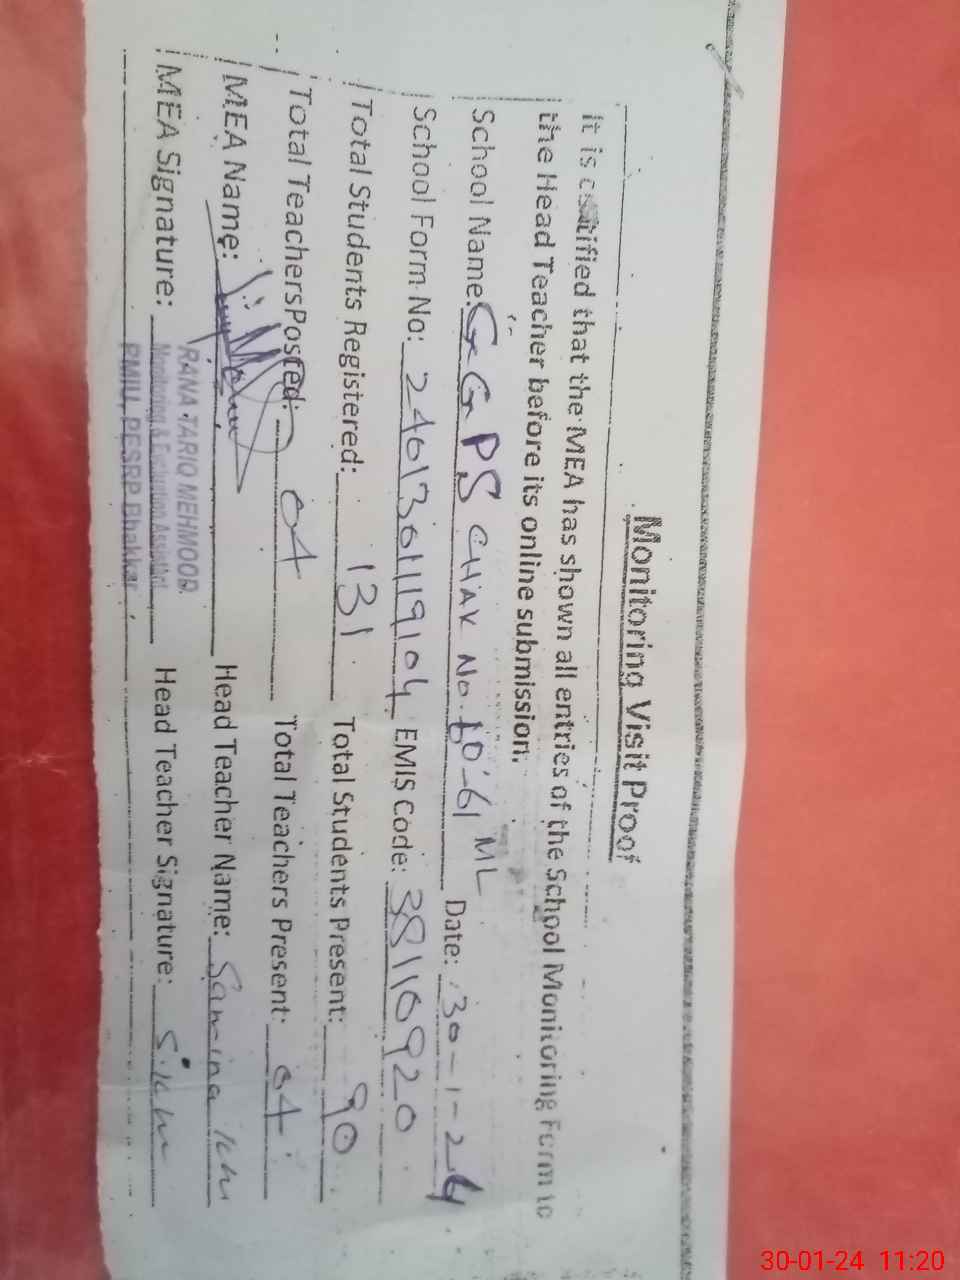 Monitoring Visit Proof
It is certified that the MEA has shown all entries of the School Monitoring Form to
the Head Teacher before its online submission.
School Name: GGPS CHAK No. 60-61 ML Date: 30-1-24
School Form No: 2401301119104 EMIS Code: 38110920
Total Students Registered: 131 Total Students Present: 90
Total TeachersPosted: 04 Total Teachers Present: 04
MEA Name: Head Teacher Name: Samina
MEA Signature: Head Teacher Signature:
RANA TARIQ MEHMOOD
Monitoring & Evaluation Assistant
PMIU, PESRP Bhakkar
30-01-24 11:20